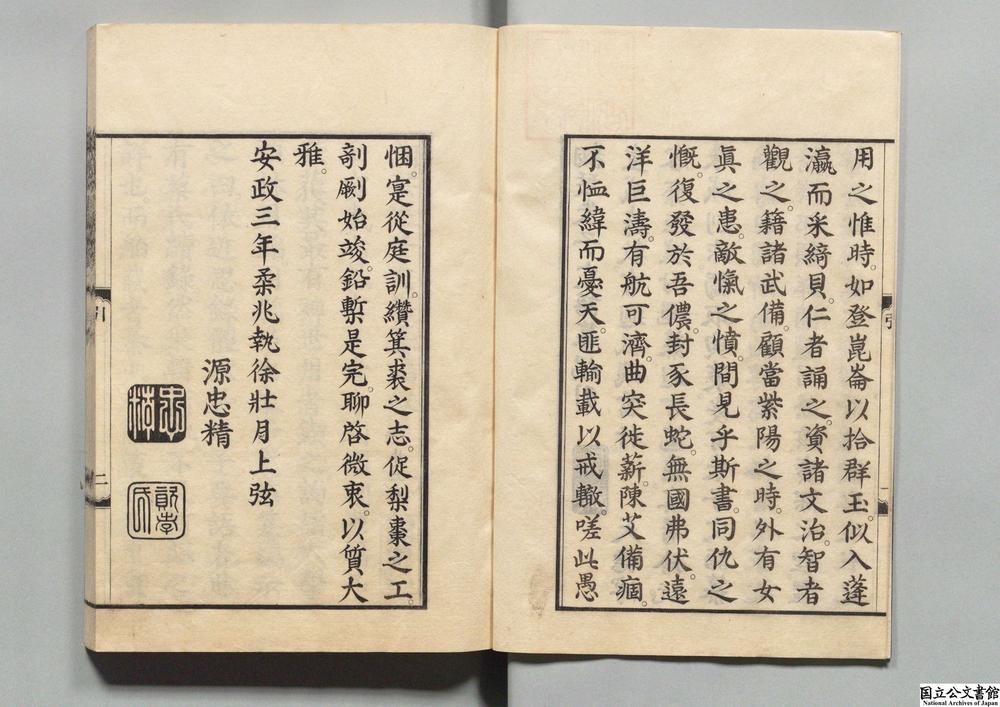 用之惟時。如登崑崙以拾群玉。似入蓬
瀛而采綺貝。仁者誦之。資諸文治。智者
觀之。籍諸武備。顧當紫陽之時。外有女
眞之患。敵愾之憤。間見乎斯書。同仇之
慨。復發於吾儂。封豕長蛇。無國弗伏。遠
洋巨濤。有航可濟。曲突徙薪。陳艾備痼。
不恤緯而憂天。匪輸載以戒轍。嗟此愚
悃。寔從庭訓。纘箕裘之志。促梨棗之工。
剞劂始竣。鉛槧是完。聊啓微衷。以質大
雅。
安政三年柔兆執徐壯月上弦
源忠精
引
二
国立公文書館
National Archives of Japan